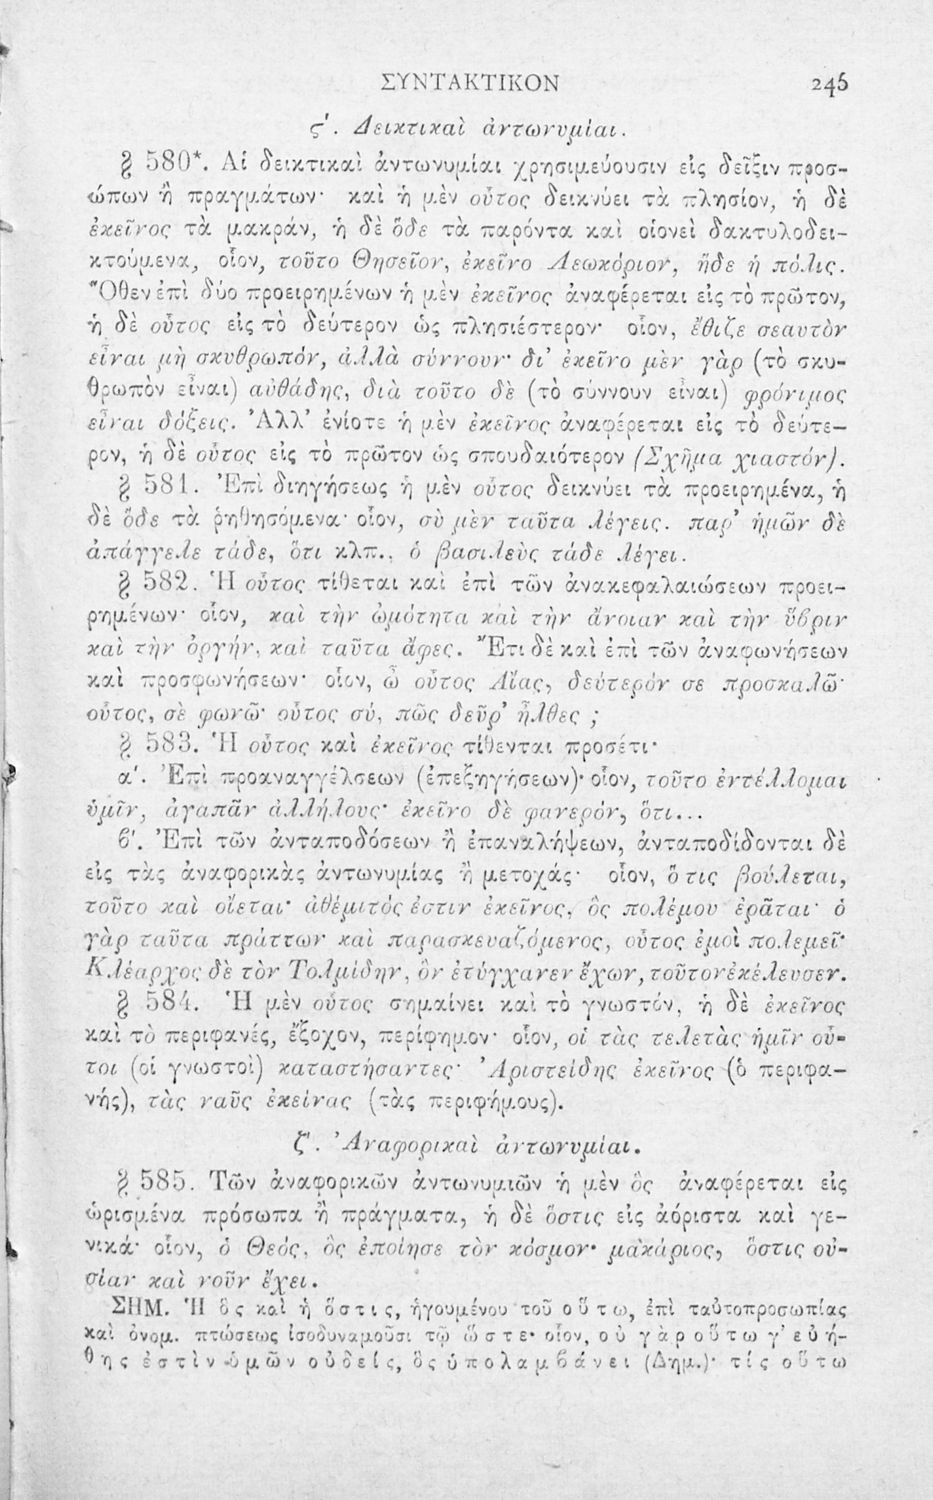 ΣΥΝΤΑΚΤΙΚΟΝ 245
ς'. Δεικτικαὶ ἀντωνυμίαι.
§ 580*. Αἱ δεικτικαὶ ἀντωνυμίαι χρησιμεύουσιν εἰς δεῖξιν προσ-
ώπων ἢ πραγμάτων· καὶ ἡ μὲν οὗτος δεικνύει τὰ πλησίον, ἡ δὲ
ἐκεῖνος τὰ μακράν, ἡ δὲ ὅδε τὰ παρόντα καὶ οἱονεὶ δακτυλοδει-
κτούμενα, οἷον, τοῦτο Θησεῖον, ἐκεῖνο Λεωκόριον, ἥδε ἡ πόλις.
Ὅθεν ἐπὶ δύο προειρημένων ἡ μὲν ἐκεῖνος ἀναφέρεται εἰς τὸ πρῶτον,
ἡ δὲ οὗτος εἰς τὸ δεύτερον ὡς πλησιέστερον· οἷον, ἔθιζε σεαυτὸν
εἶναι μὴ σκυθρωπόν, ἀλλὰ σύννουν· δι' ἐκεῖνο μὲν γὰρ (τὸ σκυ-
θρωπὸν εἶναι) αὐθάδης, διὰ τοῦτο δὲ (τὸ σύννουν εἶναι) φρόνιμος
εἶναι δόξεις. Ἀλλ' ἐνίοτε ἡ μὲν ἐκεῖνος ἀναφέρεται εἰς τὸ δεύτε-
ρον, ἡ δὲ οὗτος εἰς τὸ πρῶτον ὡς σπουδαιότερον (Σχῆμα χιαστόν).
§ 581. Ἐπὶ διηγήσεως ἡ μὲν οὗτος δεικνύει τὰ προειρημένα, ἡ
δὲ ὅδε τὰ ῥηθησόμενα· οἷον, σὺ μὲν ταῦτα λέγεις. παρ' ἡμῶν δὲ
ἀπάγγελε τάδε, ὅτι κλπ., ὁ βασιλεὺς τάδε λέγει.
§ 582. Ἡ οὗτος τίθεται καὶ ἐπὶ τῶν ἀνακεφαλαιώσεων προει-
ρημένων· οἷον, καὶ τὴν ὠμότητα καὶ τὴν ἄνοιαν καὶ τὴν ὕβριν
καὶ τὴν ὀργήν, καὶ ταῦτα ἄφες. Ἔτι δὲ καὶ ἐπὶ τῶν ἀναφωνήσεων
καὶ προσφωνήσεων· οἷον, ὦ οὗτος Αἴας, δεύτερόν σε προσκαλῶ·
οὗτος, σὲ φωνῶ· οὗτος σύ, πῶς δεῦρ' ἦλθες ;
§ 583. Ἡ οὗτος καὶ ἐκεῖνος τίθενται προσέτι·
α'. Ἐπὶ προαναγγέλσεων (ἐπεξηγήσεων)· οἷον, τοῦτο ἐντέλλομαι
ὑμῖν, ἀγαπᾶν ἀλλήλους· ἐκεῖνο δὲ φανερόν, ὅτι...
β'. Ἐπὶ τῶν ἀνταποδόσεων ἢ ἐπαναλήψεων, ἀνταποδίδονται δὲ
εἰς τὰς ἀναφορικὰς ἀντωνυμίας ἢ μετοχάς· οἷον, ὅ τις βούλεται,
τοῦτο καὶ οἴεται· ἀθέμιτός ἐστιν ἐκεῖνος, ὃς πολέμου ἐρᾶται· ὁ
γὰρ ταῦτα πράττων καὶ παρασκευαζόμενος, οὗτος ἐμοὶ πολεμεῖ·
Κλέαρχος δὲ τὸν Τολμίδην, ὃν ἐτύγχανεν ἔχων, τοῦτον ἐκέλευσεν.
§ 584. Ἡ μὲν οὗτος σημαίνει καὶ τὸ γνωστόν, ἡ δὲ ἐκεῖνος
καὶ τὸ περιφανές, ἔξοχον, περίφημον· οἷον, οἱ τὰς τελετὰς ἡμῖν οὗ-
τοι (οἱ γνωστοὶ) καταστήσαντες· Ἀριστείδης ἐκεῖνος (ὁ περιφα-
νής), τὰς ναῦς ἐκείνας (τὰς περιφήμους).
ζ'. Ἀναφορικαὶ ἀντωνυμίαι.
§ 585. Τῶν ἀναφορικῶν ἀντωνυμιῶν ἡ μὲν ὃς ἀναφέρεται εἰς
ὡρισμένα πρόσωπα ἢ πράγματα, ἡ δὲ ὅστις εἰς ἀόριστα καὶ γε-
νικά· οἷον, ὁ Θεός, ὃς ἐποίησε τὸν κόσμον· μακάριος, ὅστις οὐ-
σίαν καὶ νοῦν ἔχει.
ΣΗΜ. Ἡ ὃς καὶ ἡ ὅστις, ἡγουμένου τοῦ οὕτω, ἐπὶ ταὐτοπροσωπίας
καὶ ὀνομ. πτώσεως ἰσοδυναμοῦσι τῷ ὥστε· οἷον, οὐ γὰρ οὕτω γ' εὐή-
θης ἐστὶν ὑμῶν οὐδείς, ὃς ὑπολαμβάνει (Δημ.)· τίς οὕτω